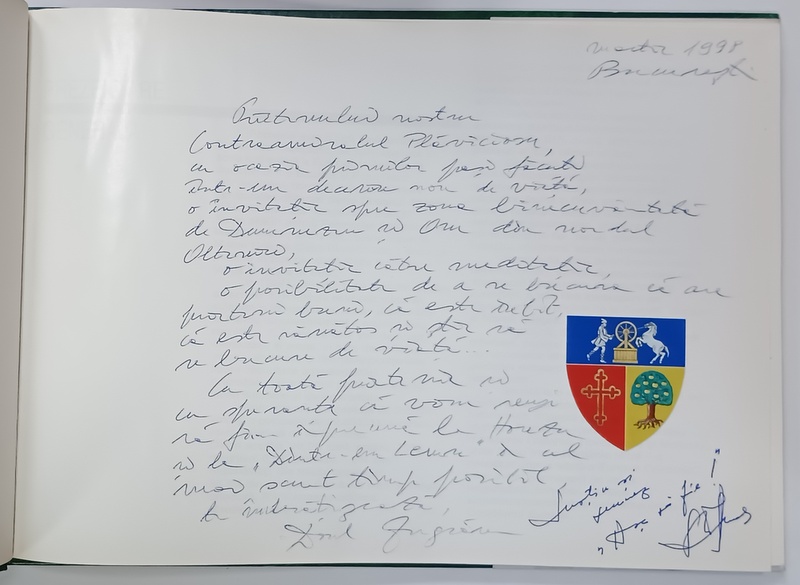 martie 1998
București
Prietenului nostru
Contraamiralul Plăviciosu,
cu ocazia primilor pași făcuți
într-un deceniu nou de viață,
o invitație spre zona binecuvântată
de Dumnezeu și Om din nordul
Olteniei,
o invitație către meditație,
o posibilitate de a se bucura că are
prieteni buni, că este iubit,
că este sănătos și știe să
se bucure de viață...
Cu toată prietenia și
cu speranța că vom reuși
să fim împreună la Horezu
și la „Dintr-un Lemn" în cel
mai scurt timp posibil
te îmbrățișează,
și
"Așa să fie!"